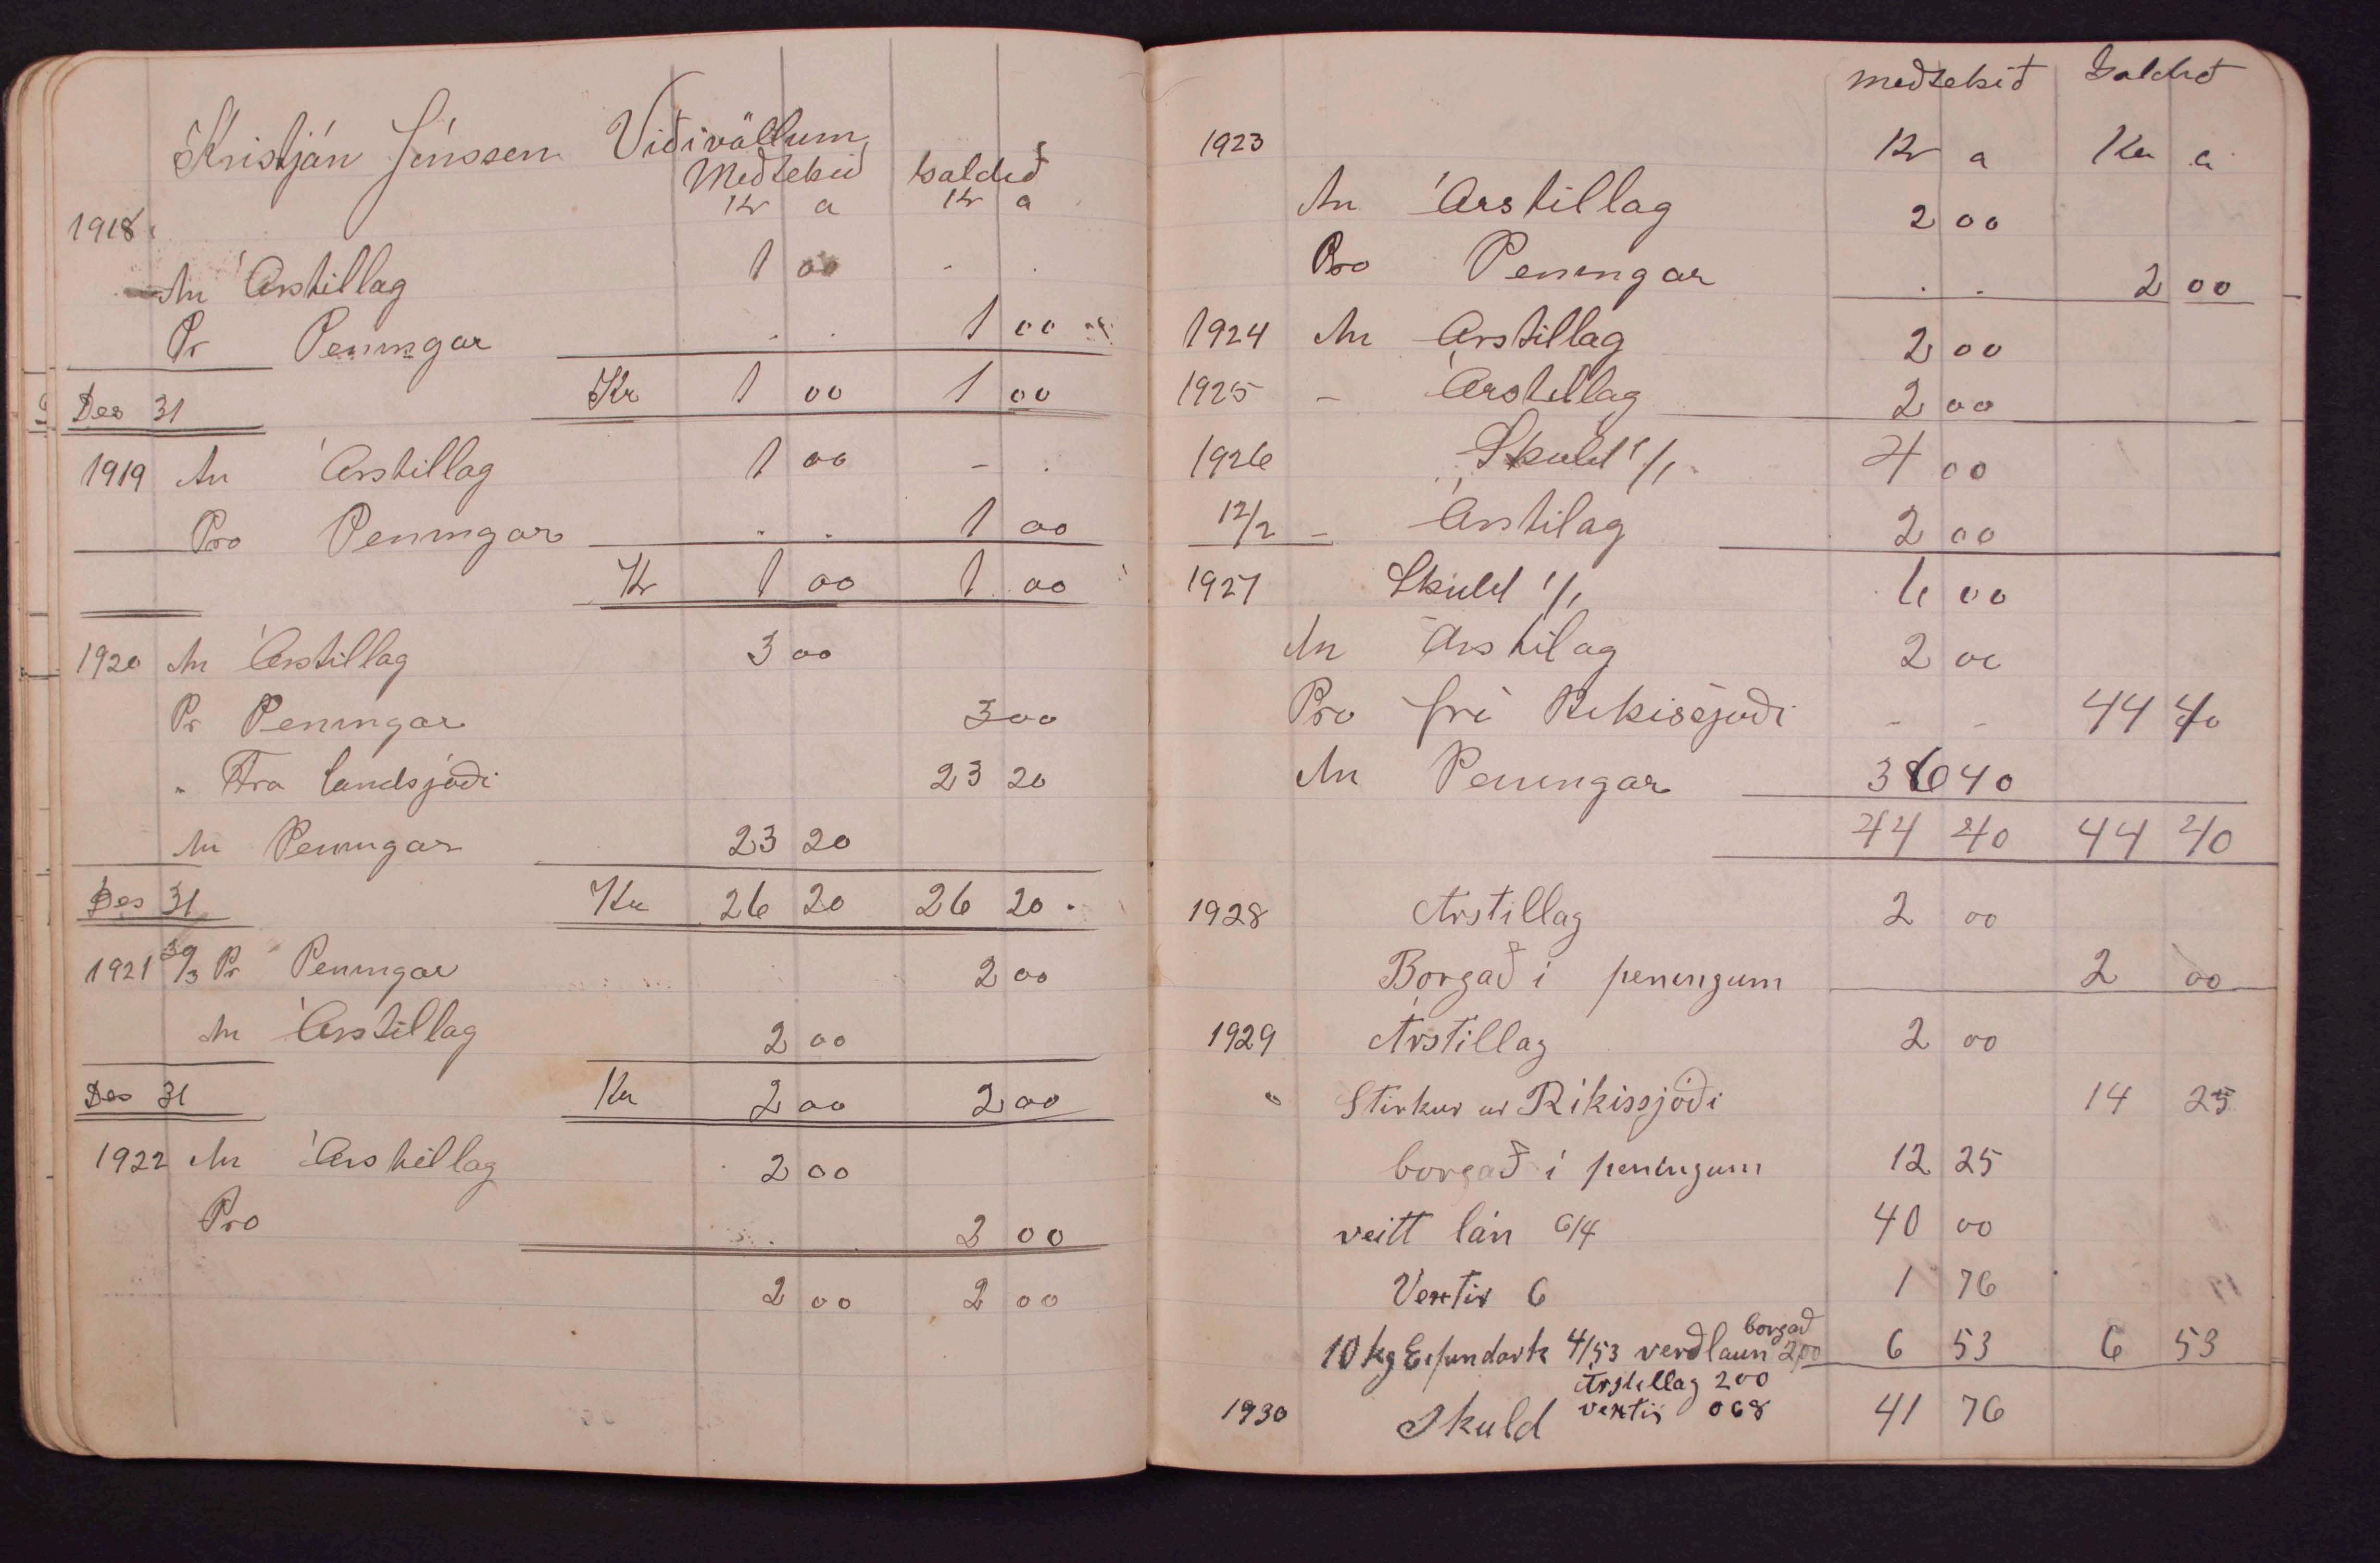 Kristján Jónssen Viðivöllum
Meðtekið Galdið
Kr a Kr a
1918
An Árstillag 1 00 - .
Pr Peningar . . 1 00
Des 31 Kr 1 00 1 00
1919 An Árstillag 1 00 - .
Pro Peningar . . 1 00
Kr 1 00 1 00
1920 An Árstillag 3 00
Pr Peningar 3 00
" Fra landsjóði 23 20
An Peningar 23 20
Des 31 Kr 26 20 26 20
1921 30/3 Pr Peningar 2 00
An Árstillag 2 00
Des 31 Kr 2 00 2 00
1922 An Árstillag 2 00
Pro . . 2 00
2 00 2 00
meðtekið Galdið
1923 Kr a Kr a
An Árstillag 2 00
Pro Peningar . . 2 00
1924 An Árstillag 2 00
1925 - Árstillag 2 00
1926 Skuld 1/1 4 00
12/2 - Árstilag 2 00
1927 Skuld 1/1 6 00
An Árstilag 2 00
Pro frá Rikissjoði - - 44 40
An Peningar 36 40
44 40 44 40
1928 Árstillag 2 00
Borgað i peningum 2 00
1929 Árstillag 2 00
" Stirkur ur Ríkissjóði 14 25
borgað i peningum 12 25
veitt lán 6/4 40 00
Vextir 6 1 76
borgað
10 kg 4/53 verðlaun 2,00 6 53 6 53
Árstillag 200
1930 Skuld vextir 068 41 76